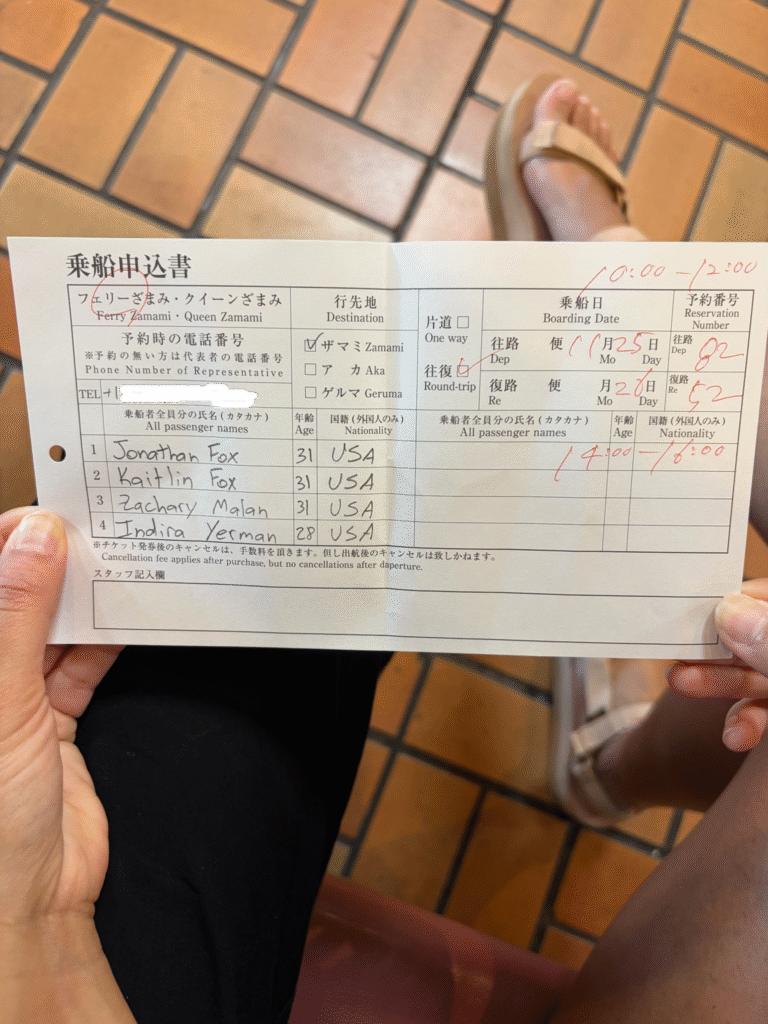 乗船申込書
10:00-12:00
フェリーざまみ・クイーンざまみ
Ferry Zamami・Queen Zamami
予約時の電話番号
※予約の無い方は代表者の電話番号
Phone Number of Representative
TEL +1
行先地
Destination
ザマミ Zamami
アカ Aka
ゲルマ Geruma
片道
One way
往復
Round-trip
乗船日
Boarding Date
往路 便 11月25日
Dep Mo Day
復路 便 月26日
Re Mo Day
予約番号
Reservation
Number
往路
Dep 82
復路
Re 52
乗船者全員分の氏名(カタカナ) 年齢 国籍(外国人のみ) 乗船者全員分の氏名(カタカナ) 年齢 国籍(外国人のみ)
All passenger names Age Nationality All passenger names Age Nationality
1 Jonathan Fox 31 USA 14:00-16:00
2 Kaitlin Fox 31 USA
3 Zachary Malan 31 USA
4 Indira Yerman 28 USA
※チケット発券後のキャンセルは、手数料を頂きます。但し出航後のキャンセルは致しかねます。
Cancellation fee applies after purchase, but no cancellations after daperture.
スタッフ記入欄